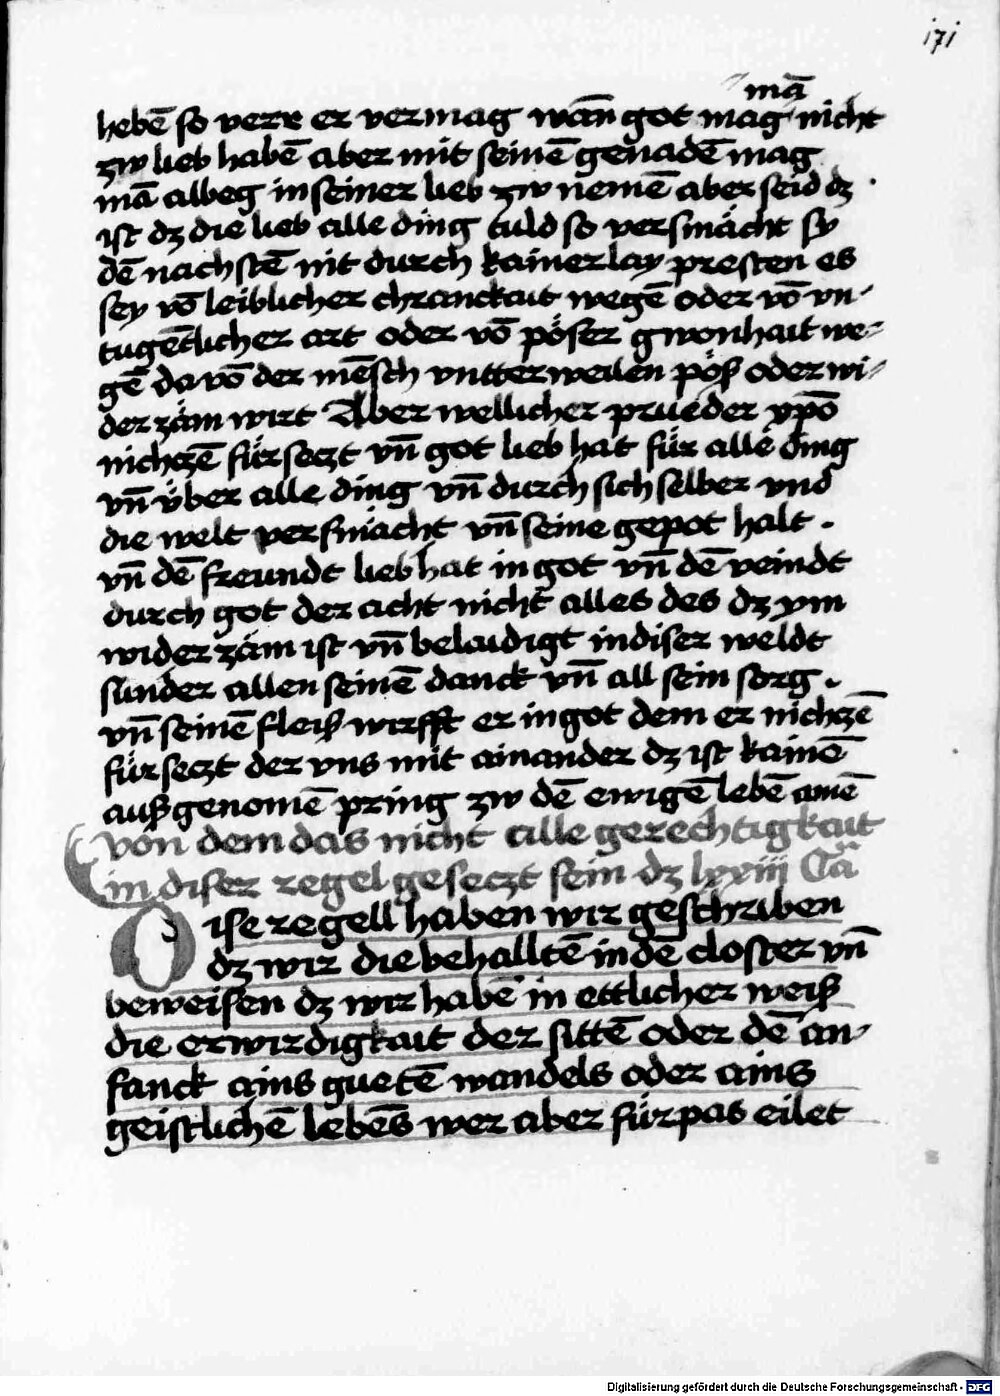 i7i
mā
hebē so verr er vermag wān got mag nicht
zw lieb habē aber mit seinē genadē mag
mā albeg in seiner lieb zw nemē aber seid dz
ist dz die lieb alle ding tuld so versmächt sy
dē nachstē nit durch kainerlay presten es
sey vō leiblicher chranckait wegē oder vō vn-
tugētlicher art oder vō pöser gwonhait we-
gē da vō der mēsch vntterweilen pöß oder wi-
der zäm wirt Aber wellicher prueder xpō
nichczē fürseczt vn̄ got lieb hat für alle ding
vn̄ über alle ding vn̄ durch sich selber vnd
die welt versmächt vn̄ seine gepot halt .
vn̄ dē freundt lieb hat in got vn̄ dē veindt
durch got der acht nicht alles des dz ym
wider zäm ist vn̄ belaidigt in diser weldt
sunder allen seinē danck vn̄ all sein sorg .
vn̄ seinē fleiß wirfft er in got dem er nichczē
fürseczt der vns mit ainander dz ist kainē
außgenomē pring zw dē ewigē lebē amē
von dem das nicht alle gerechtigkait
in diser regel geseczt sein dz lxxiii Cā
Dise regell haben wir geschriben
dz wir die behalltē in dē closter vn̄
beweisen dz wir habē in ettlicher weiß
die erwirdigkait der sittē oder dē an-
fanck ains guetē wandels oder ains
geistlichē lebēs wer aber fürpas eilet
Digitalisierung gefördert durch die Deutsche Forschungsgemeinschaft - DFG